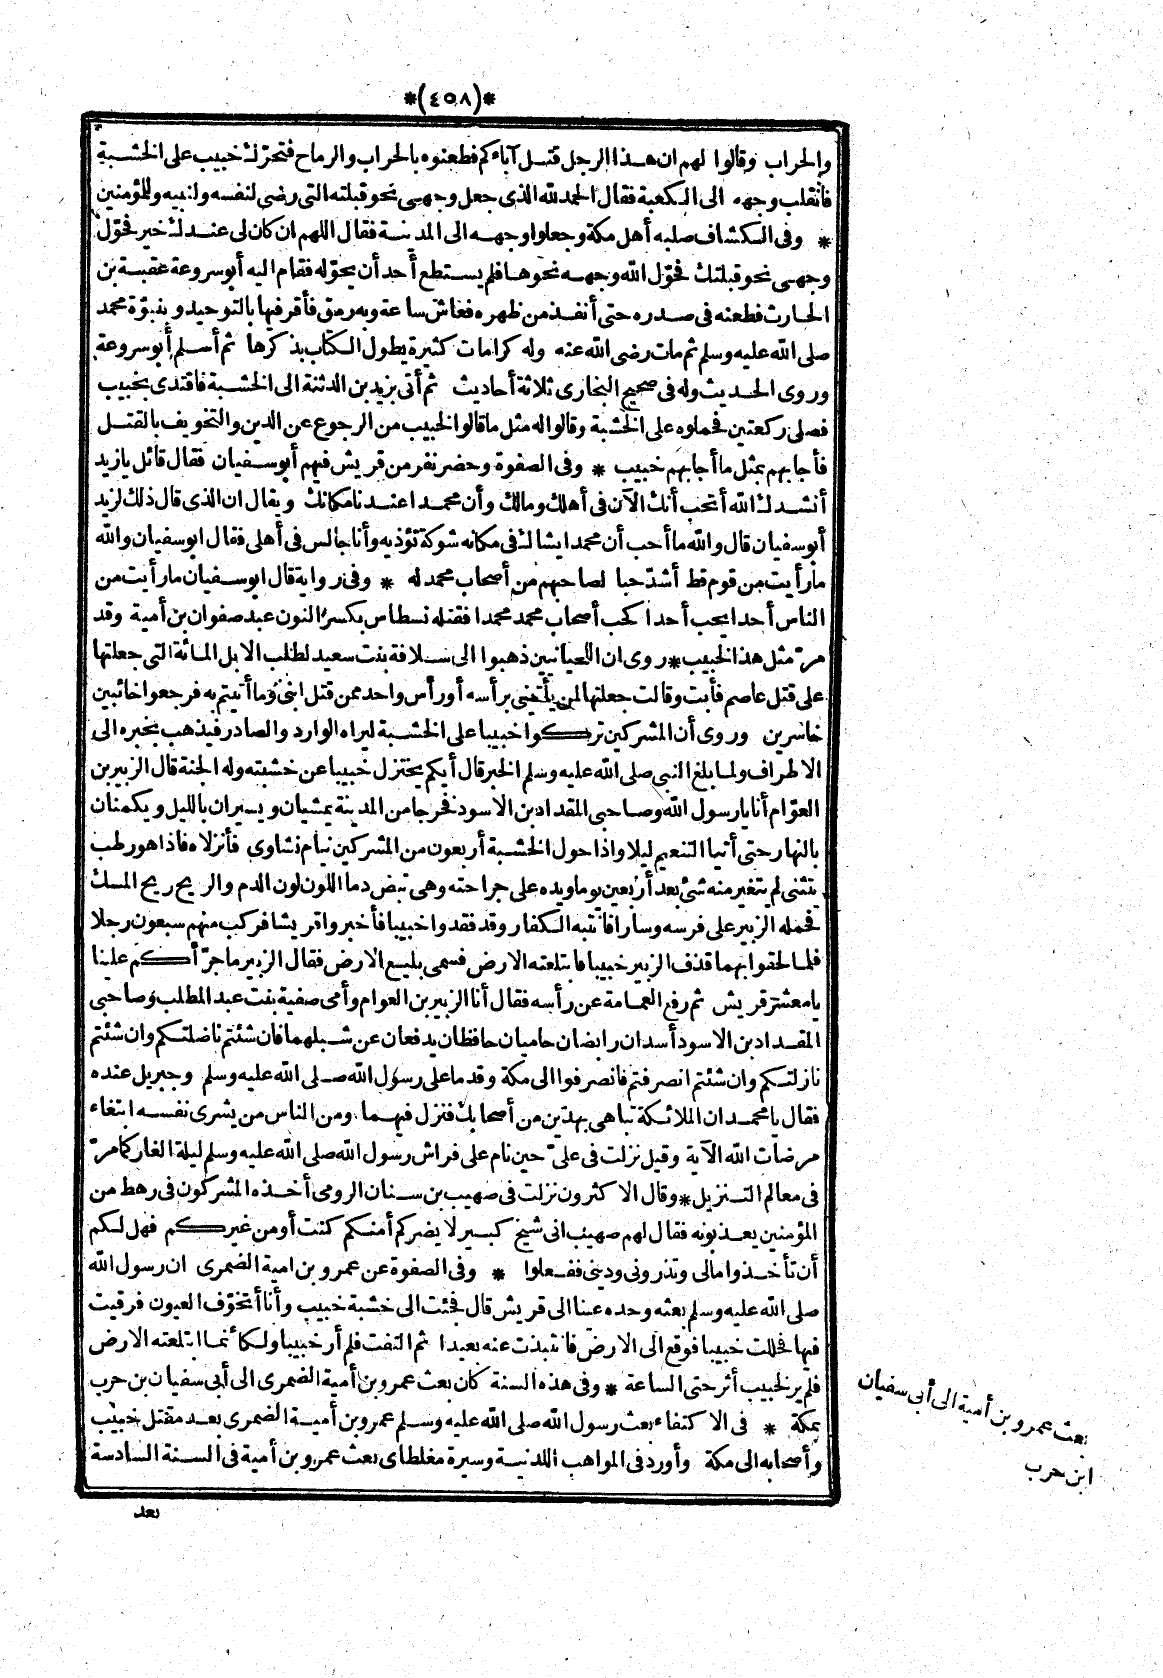 *(٤٥٨)*
والحراب وقالوا لهم ان هذا الرجل قتل آباءكم فطعنوه بالحراب والرماح فتحرّك خبيب على الخشبة
فانقلب وجهه الى الكعبة فقال الحمد لله الذى جعل وجهى نحو قبلته التى رضى لنفسه ولنبيه وللمؤمنين
* وفى الكشاف صلبه أهل مكة وجعلوا وجهه الى المدينة فقال اللهم ان كان لى عندك خير فحوّل
وجهى نحو قبلتك فحوّل الله وجهه نحوها فلم يستطع أحد أن يحوّله فقام اليه أبو سروعة عقبة بن
الحارث فطعنه فى صدره حتى أنفذ من ظهره فعاش ساعة وبه رمق فأقر فيها بالتوحيد وبنبوّة محمد
صلى الله عليه وسلم ثم مات رضى الله عنه وله كرامات كثيرة يطول الكتاب بذكرها ثم أسلم أبو سروعة
وروى الحديث وله فى صحيح البخارى ثلاثة أحاديث ثم أتى بزيد بن الدثنة الى الخشبة فاقتدى بخبيب
فصلى ركعتين فحملوه على الخشبة وقالوا له مثل ما قالوا لخبيب من الرجوع عن الدين والتخويف بالقتل
فأجابهم بمثل ما أجابهم خبيب * وفى الصفوة وحضر نفر من قريش فيهم أبو سفيان فقال قائل يازيد
أنشدك الله أتحب أنك الآن فى أهلك ومالك وأن محمدا عندنا مكانك ويقال ان الذى قال ذلك لزيد
أبو سفيان قال والله ما أحب أن محمدا يشاك فى مكانه شوكة تؤذيه وأنا جالس فى أهلى فقال ابو سفيان والله
ما رأيت من قوم قط أشدّ حبا لصاحبهم من أصحاب محمد له * وفى رواية قال ابو سفيان ما رأيت من
الناس أحدا يحب أحدا كحب أصحاب محمد محمدا فقتله نسطاس بكسر النون عبد صفوان بن أمية وقد
مرّ مثل هذا لخبيب * روى ان اللحيانيين ذهبوا الى سلافة بنت سعيد لطلب الابل المائة التى جعلتها
على قتل عاصم فأبت وقالت جعلتها لمن يأتينى برأسه أو رأس واحد ممن قتل ابنىّ وما أتيتم به فرجعوا خائبين
خاسرين وروى أن المشركين تركوا خبيبا على الخشبة ليراه الوارد والصادر فيذهب بخبره الى
الاطراف ولما بلغ النبى صلى الله عليه وسلم الخبر قال أيكم يختزل خبيبا عن خشبته وله الجنة قال الزبير بن
العوّام أنا يا رسول الله وصاحبى المقداد بن الاسود فخرجا من المدينة يمشيان ويسيران بالليل ويكمنان
بالنهار حتى أتيا التنعيم ليلا واذا حول الخشبة أربعون من المشركين نيام نشاوى فأنزلاه فاذا هو رطب
يتثنى لم يتغير منه شئ بعد أربعين يوما ويده على جراحته وهى تبض دما اللون لون الدم والريح ريح المسك
فحمله الزبير على فرسه وسارا فانتبه الكفار وقد فقدوا خبيبا فأخبروا قريشا فركب منهم سبعون رجلا
فلما لحقوا بهما قذف الزبير خبيبا فابتلعته الارض فسمى بليع الارض فقال الزبير ما جرّأكم علينا
يا معشر قريش ثم رفع العمامة عن رأسه فقال أنا الزبير بن العوام وأمى صفية بنت عبد المطلب وصاحبى
المقداد بن الاسود أسدان رابضان حاميان حافظان يدفعان عن شبلهما فان شئتم ناضلتكم وان شئتم
نازلتكم وان شئتم انصرفتم فانصرفوا الى مكة وقدما على رسول الله صلى الله عليه وسلم وجبريل عنده
فقال يا محمد ان الملائكة تباهى بهذين من أصحابك فنزل فيهما ومن الناس من يشرى نفسه ابتغاء
مرضات الله الآية وقيل نزلت فى علىّ حين نام على فراش رسول الله صلى الله عليه وسلم ليلة الغار كما مرّ
فى معالم التنزيل * وقال الاكثرون نزلت فى صهيب بن سنان الرومى أخذه المشركون فى رهط من
المؤمنين يعذبونه فقال لهم صهيب انى شيخ كبير لا يضركم أمنكم كنت أو من غيركم فهل لكم
أن تأخذوا مالى وتذرونى ودينى ففعلوا * وفى الصفوة عن عمرو بن امية الضمرى ان رسول الله
صلى الله عليه وسلم بعثه وحده عينا الى قريش قال فجئت الى خشبة خبيب وأنا أتخوّف العيون فرقيت
فيها فحللت خبيبا فوقع الى الارض فانتبذت عنه بعيدا ثم التفت فلم أر خبيبا ولكأنما ابتلعته الارض
فلم ير لخبيب أثر حتى الساعة * وفى هذه السنة كان بعث عمرو بن أمية الضمرى الى أبى سفيان بن حرب
بمكة * فى الاكتفاء بعث رسول الله صلى الله عليه وسلم عمرو بن أمية الضمرى بعد مقتل خبيب
وأصحابه الى مكة وأورد فى المواهب اللدنية وسيرة مغلطاى بعث عمرو بن أمية فى السنة السادسة
بعد
بعث عمرو بن أمية الى أبى سفيان
ابن حرب